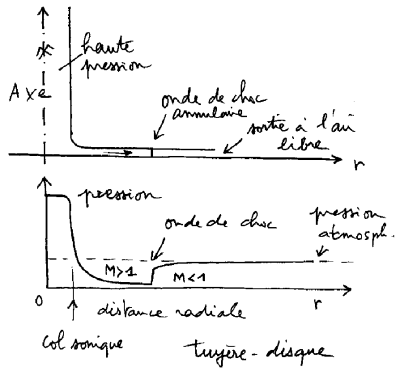 haute
pression
Axe
onde de choc
annulaire
sortie à l'air
libre
r
pression
onde de choc
pression
atmosph.
M>1
M<1
0
distance radiale
r
col sonique
tuyère-disque